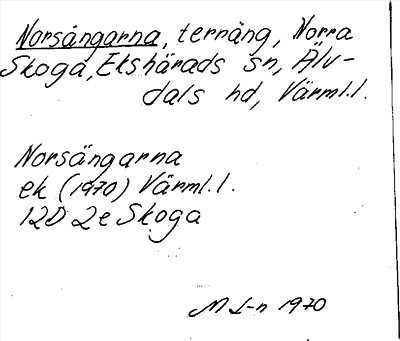 Norsängarna, terräng, Norra
Skoga, Ekshärads sn, Älv-
dals hd, Värml.l.
Norsängarna
ek (1970) Värml.l.
12D 2e Skoga
M L-n 1970